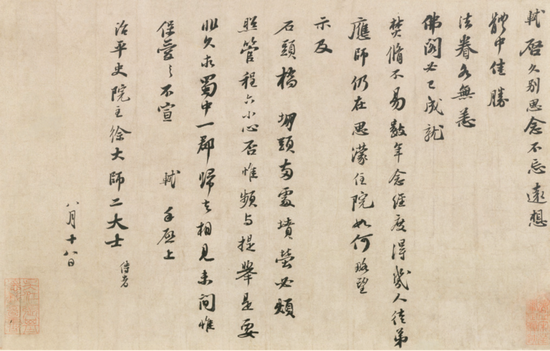 軾啓久別思念不忘遠想
體中佳勝
法眷各無恙
佛閣必已成就
焚脩不易數年念經度得幾人徒弟
應師仍在思濛住院如何略望
示及
石頭橋 堋頭兩處墳塋必煩
照管程六小心否惟頻與提舉是要
非久求蜀中一郡歸去相見未間惟
保愛之不宣 軾 手啓上
治平史院主徐大師二大士 侍者
八月十八日